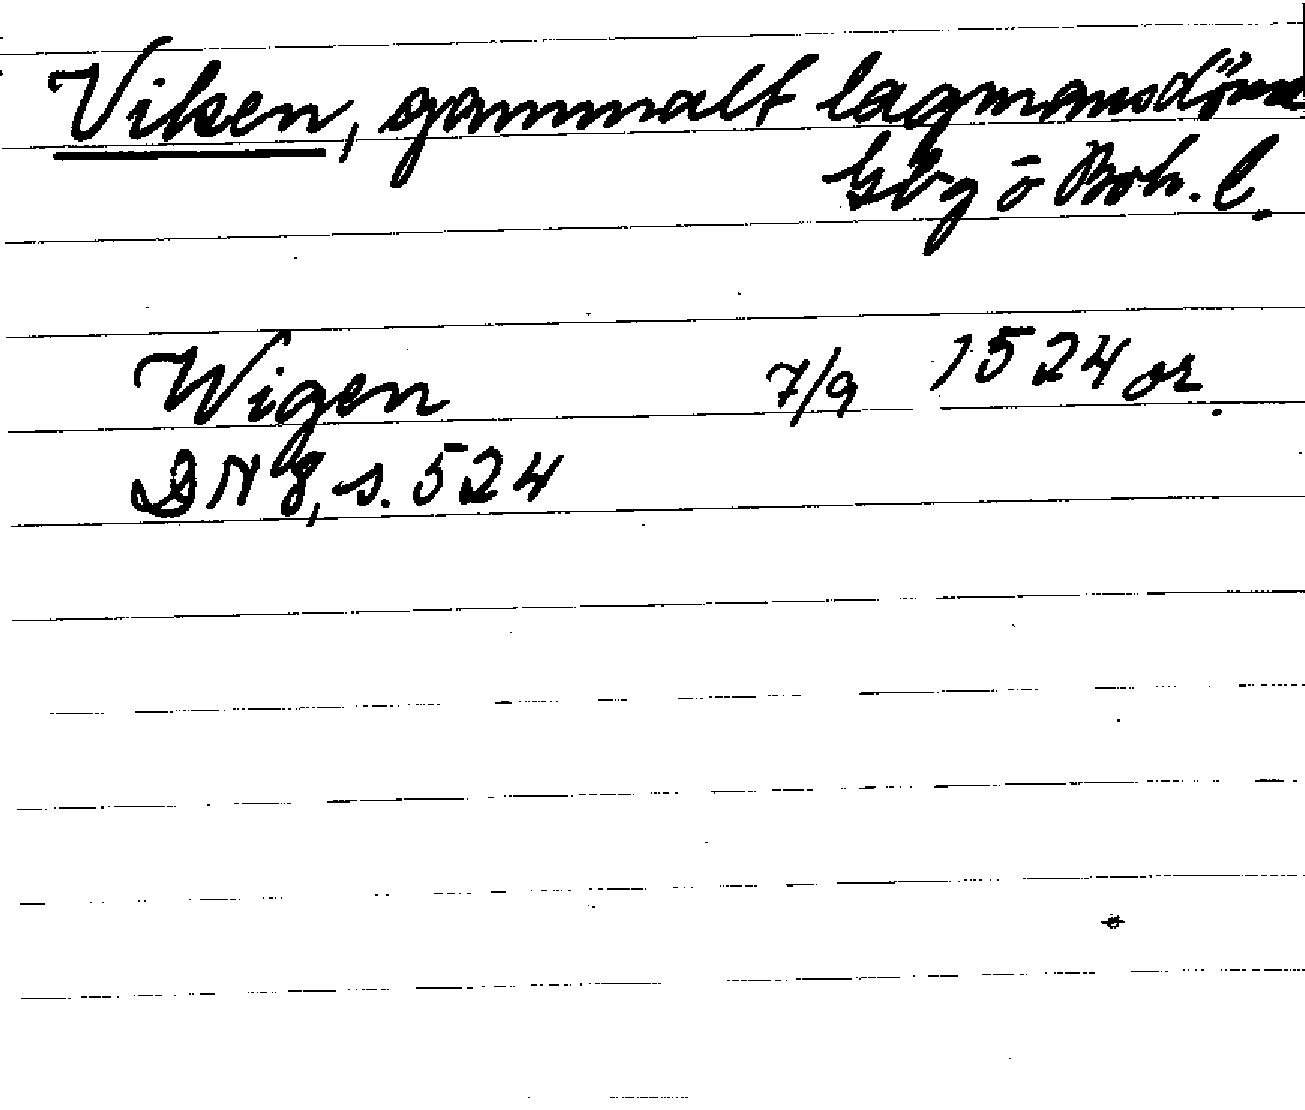 Viken, gammalt lagmansdöme
Gbg o Boh. l.
Wigen 7/9 1524 or.
DN 8, s. 524